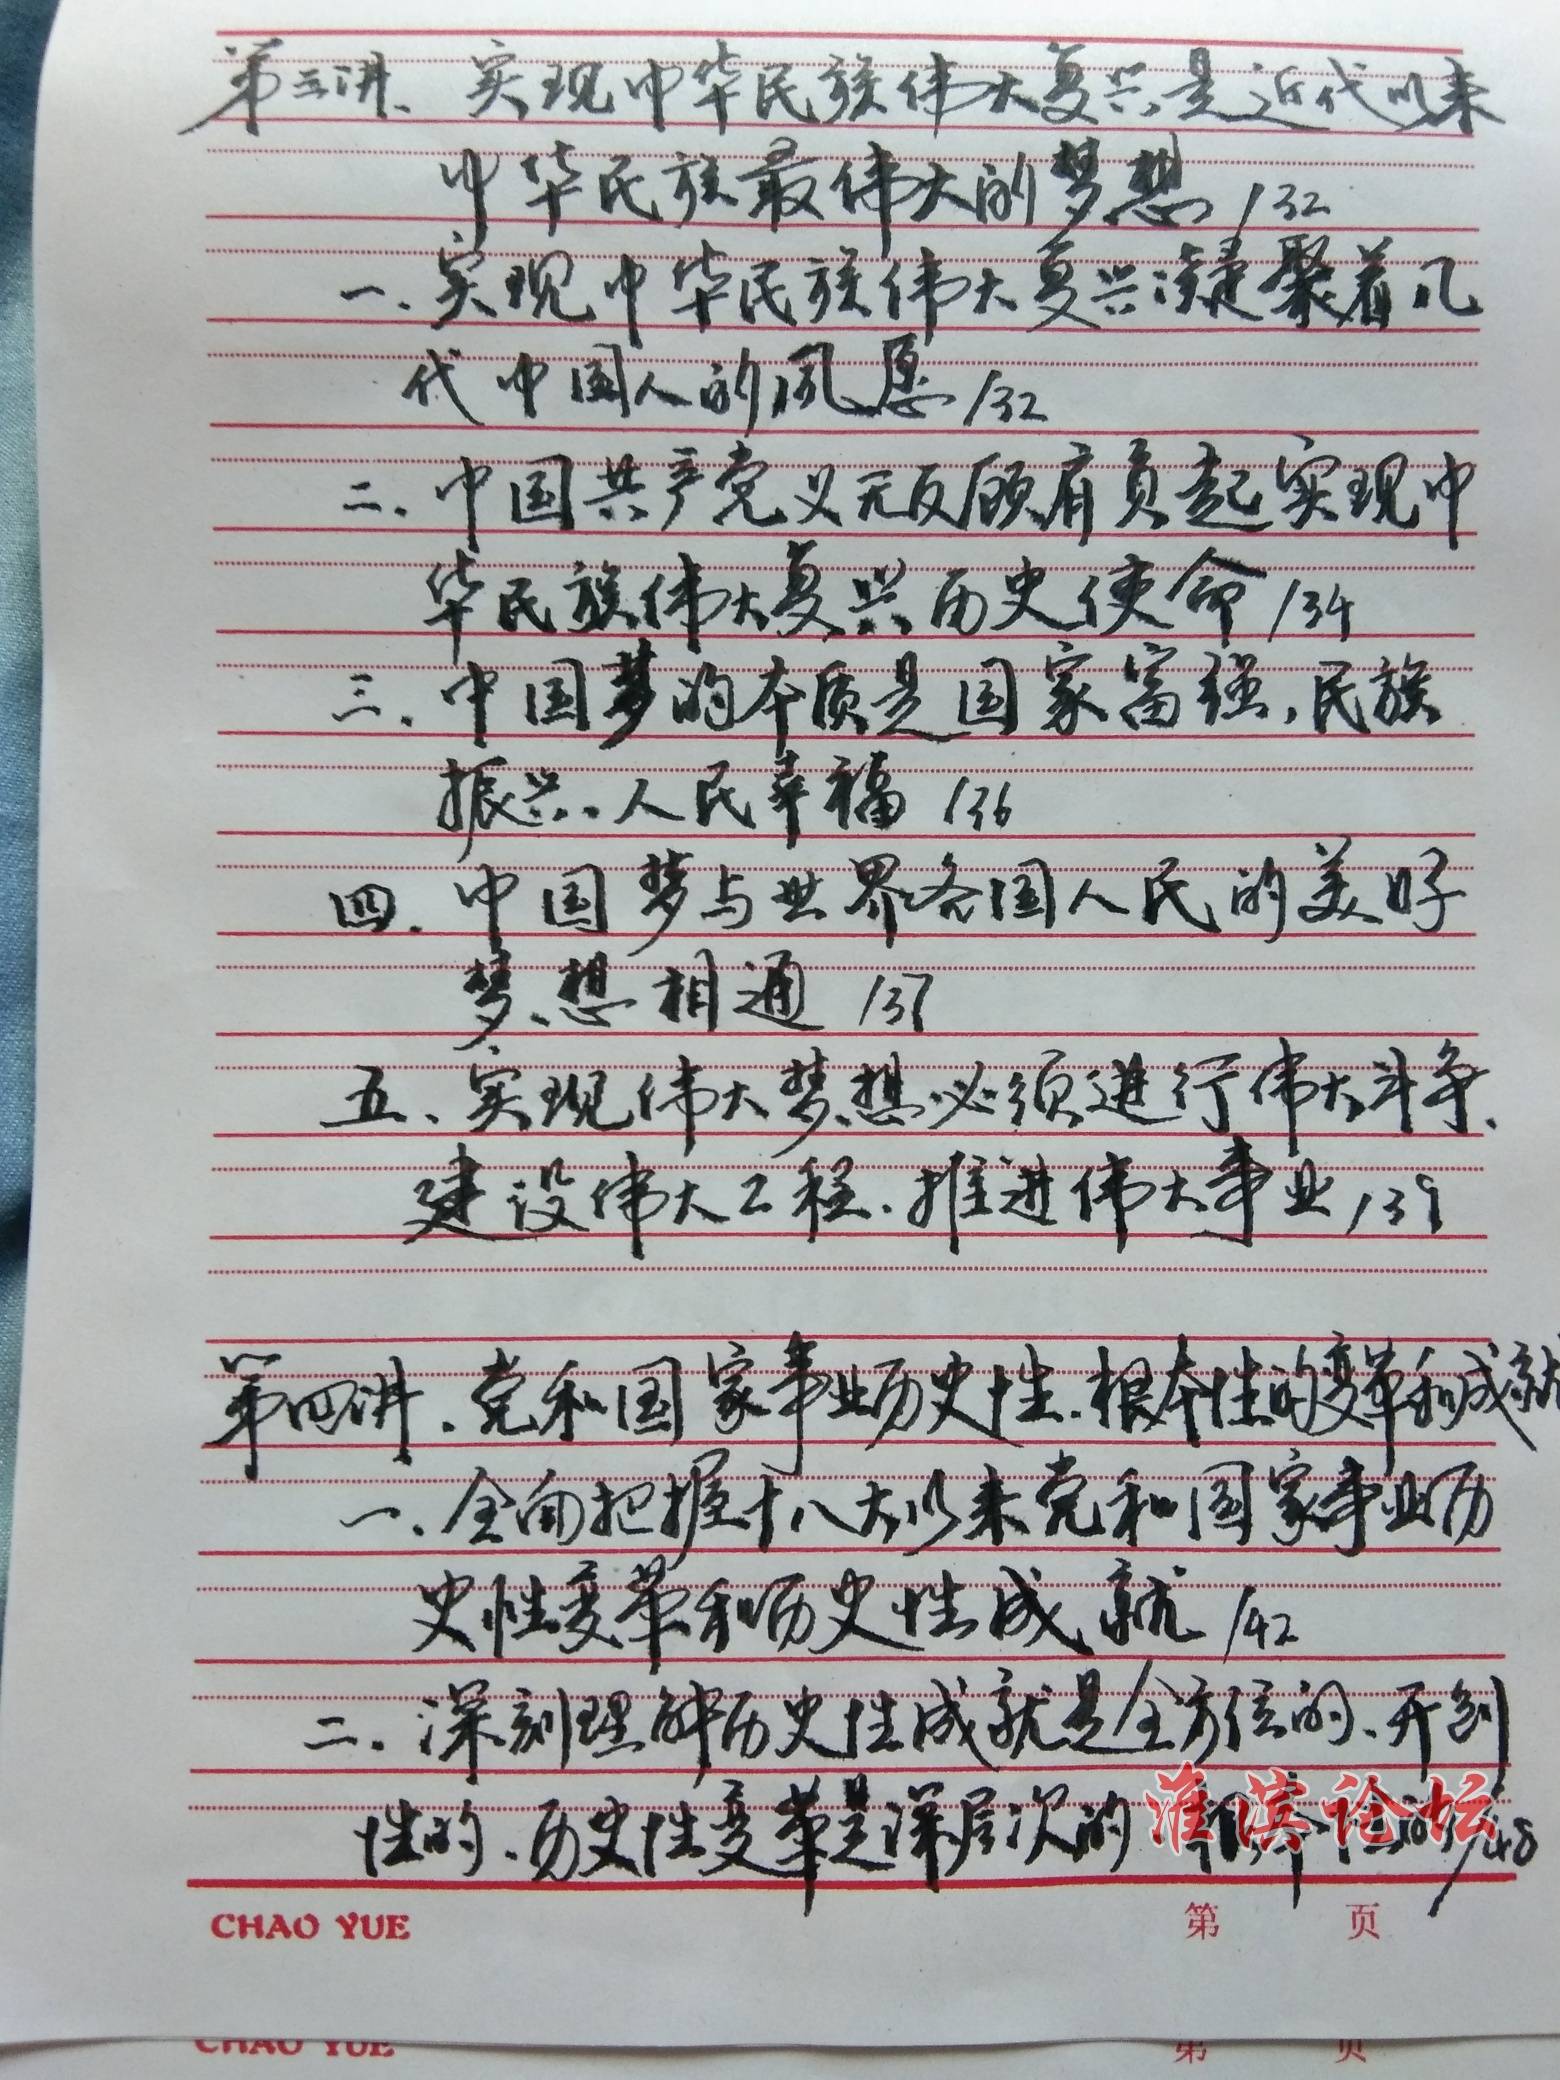 第三讲、实现中华民族伟大复兴是近代以来
中华民族最伟大的梦想 132
一、实现中华民族伟大复兴凝聚着几
代中国人的夙愿 132
二、中国共产党义无反顾肩负起实现中
华民族伟大复兴历史使命 134
三、中国梦的本质是国家富强、民族
振兴、人民幸福 136
四、中国梦与世界各国人民的美好
梦想相通 137
五、实现伟大梦想必须进行伟大斗争、
建设伟大工程、推进伟大事业 139
第四讲、党和国家事业历史性、根本性的变革和成就
一、全面把握十八大以来党和国家事业历
史性变革和历史性成就 142
二、深刻理解历史性成就是全方位的、开创
性的、历史性变革是深层次的、根本性的 148
淮滨论坛
CHAO YUE 第 页
CHAO YUE 第 页